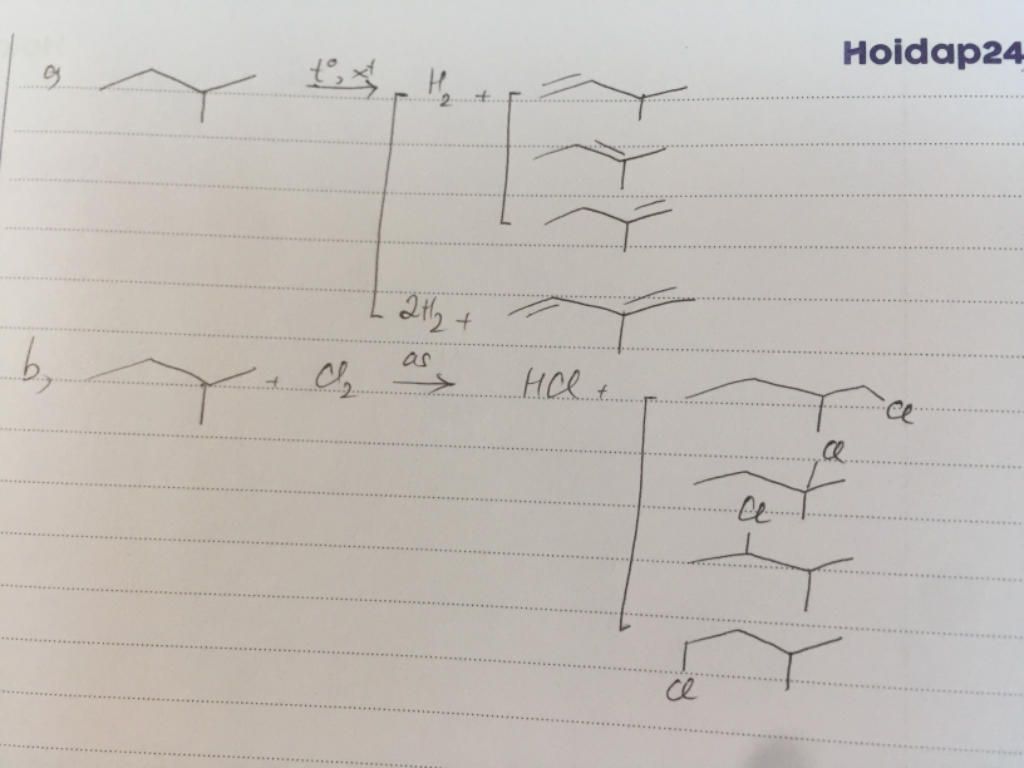 Hoidap24
a, t°, xt H₂ +
2H₂ +
b, + Cl₂ as HCl + Cl
Cl
Cl
Cl